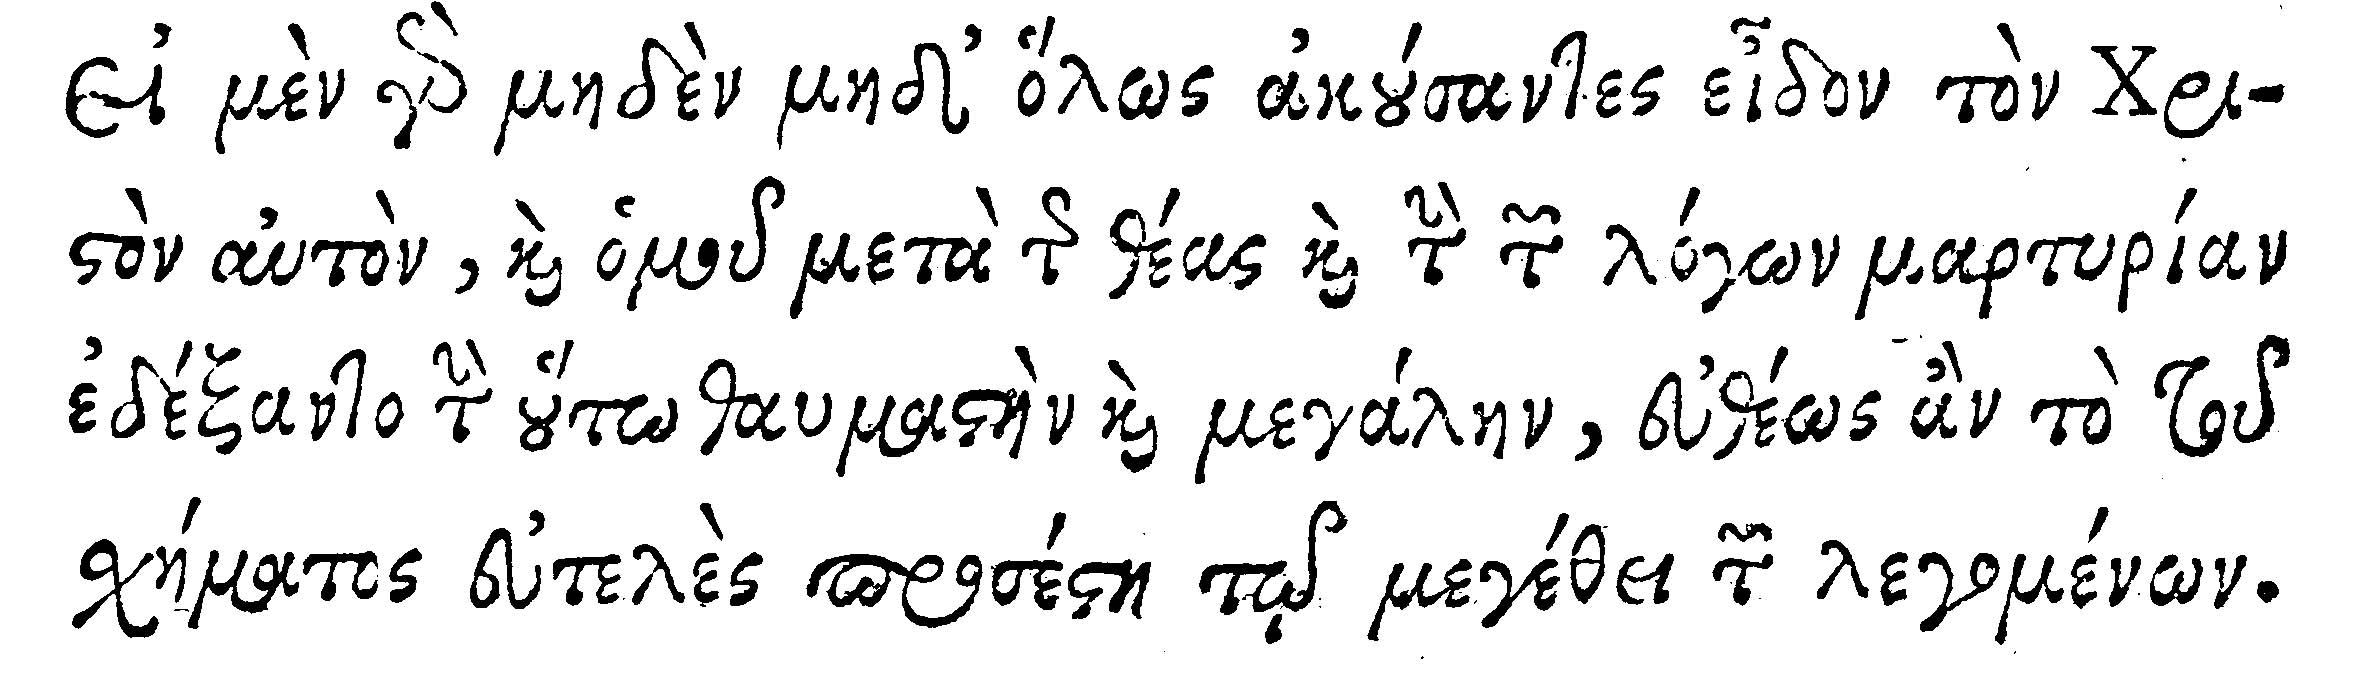 Εἰ μὲν γὰρ μηδὲν μηδ' ὅλως ἀκούσαντες εἶδον τὸν Χρι-
στὸν αὐτὸν, καὶ ὁμοῦ μετὰ τῆς θέας καὶ τὴν τῶν λόγων μαρτυρίαν
ἐδέξαντο τὴν οὕτω θαυμαστὴν καὶ μεγάλην, εὐθέως ἂν τὸ τοῦ
σχήματος εὐτελὲς προσέστη τῷ μεγέθει τῶν λεγομένων.